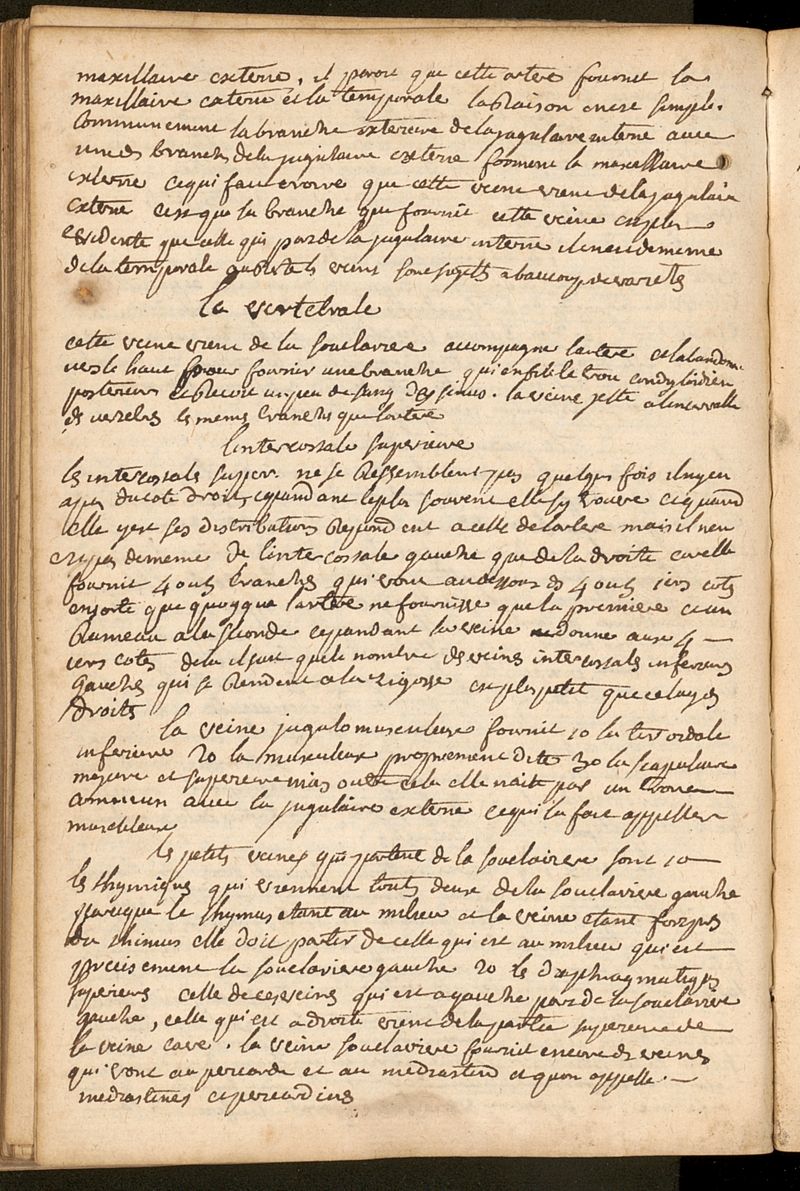 maxillaire externe, il paroit que cette artere fournit la
maxillaire externe et la temporale la Raison en est simple.
Communement la branche exterieure de la jugulaire interne avec
une des branches de la jugulaire externe forment la maxillaire
externe ce qui fait croire que cette veine vient de la jugulaire
externe c'est que la branche que fournit cette veine est plus
evidente que celle qui part de la jugulaire interne il en est de meme
de la temporale au reste les veines sont sujets a beaucoup de varietes
la vertebrale
cette veine vient de la souclaviere accompagne lartere et labandonne
vers le haut pour fournir une branche qui enfile le trou condyloidien
posterieur et Recoit un peu de sang des sinus. la veine jette a lintervalle
des vertebres les memes branches que lartere
lintercostale superieure
les intercostales super. ne se Ressemblent pas quelque fois il ny en
a pas du coté droit, cependant le plus souvent elle sy trouve et quand
elle y est ses distributions Repondent a celle de lartere mais il nen
est pas de meme de lintercostale gauche que de la droite car elle
fournit 4 ou 5 branches qui vont au dessous des 4 ou 5 1ers cotes
ensorte que quoyque lartere ne fournisse que la premiere et un
Rameau a la seconde cependant la veine en donne aux 4
1ers cotes de la il suit que le nombre des veines intercostales inferieures
gauches qui se Rendent a la zigosse est plus petit que celuy des
droits
la veine jugulo musculeuse fournit 1o la cervicale
inferieure 2o la musculeuse proprement dite 3o la scapulaire
majeure et superieure mais outre cela elle nait par un tronc
commun avec la jugulaire externe ce qui la fait appeller
musculeuse
les petites veines qui partent de la souclaviere sont 1o
les thymiques qui viennent toutes deux de la souclaviere gauche
parceque le thymus etant au milieu et la veine etant fort pres
du thimus elle doit partir de celle qui est au milieu qui est
precisement la souclaviere gauche 2o les diaphragmatiques
superieures celle de ces veines qui est a gauche part de la souclaviere
gauche, celle qui est a droite vient de la partie superieure de
la veine cave. la veine souclaviere fournit encore des veines
qui vont au pericarde et au mediastin et quon appelle
mediastines et pericardines